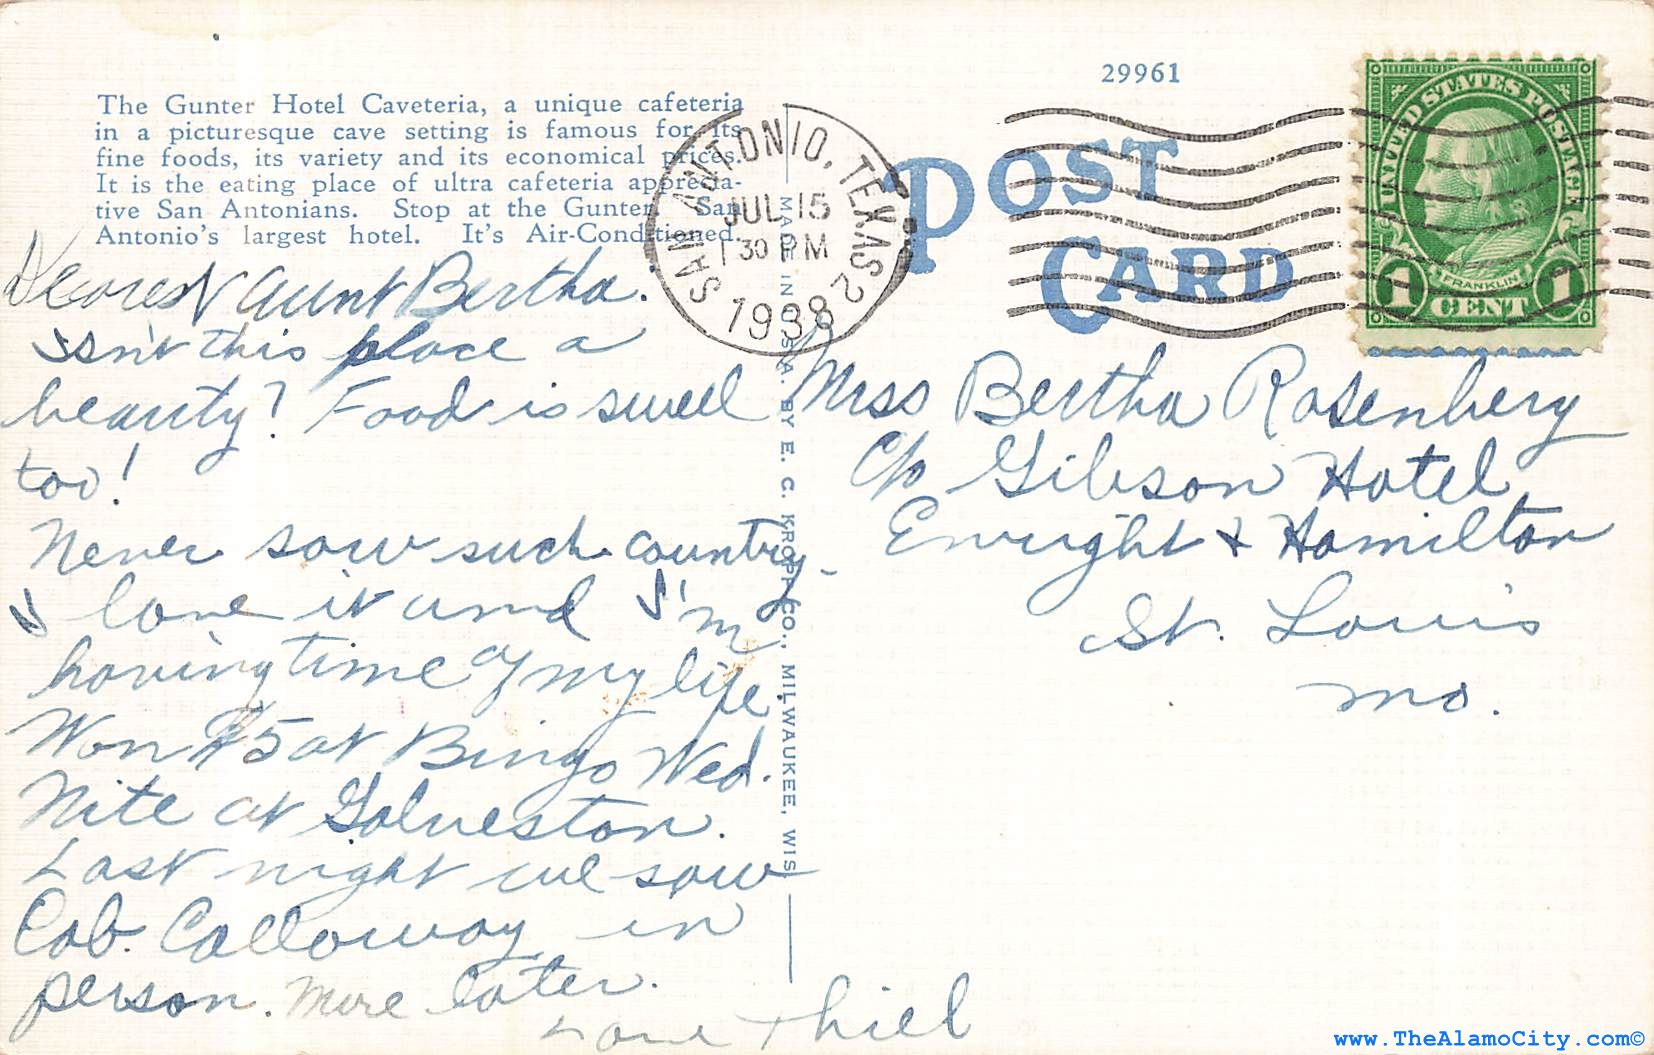 29961
The Gunter Hotel Caveteria, a unique cafeteria
in a picturesque cave setting is famous for its
fine foods, its variety and its economical prices.
It is the eating place of ultra cafeteria apprecia-
tive San Antonians. Stop at the Gunter, San
Antonio's largest hotel. It's Air-Conditioned.
SAN ANTONIO, TEXAS 2
JUL 15
1 30 PM
1938
POST
CARD
UNITED STATES POSTAGE
FRANKLIN
1 CENT 1
MADE IN U.S.A. BY E. C. KROPP CO., MILWAUKEE, WIS.
Dearest Aunt Bertha.
Isn't this place a
beauty? Food is swell
too!
Never saw such country-
I love it and I'm
having time of my life.
Won $5 at Bingo Wed.
Nite at Galveston.
Last night we saw
Cab. Calloway in
person. More later.
Love Thiel
Miss Bertha Rosenberg
c/o Gibson Hotel
Enright & Hamilton
St. Louis
Mo.
www.TheAlamoCity.com©